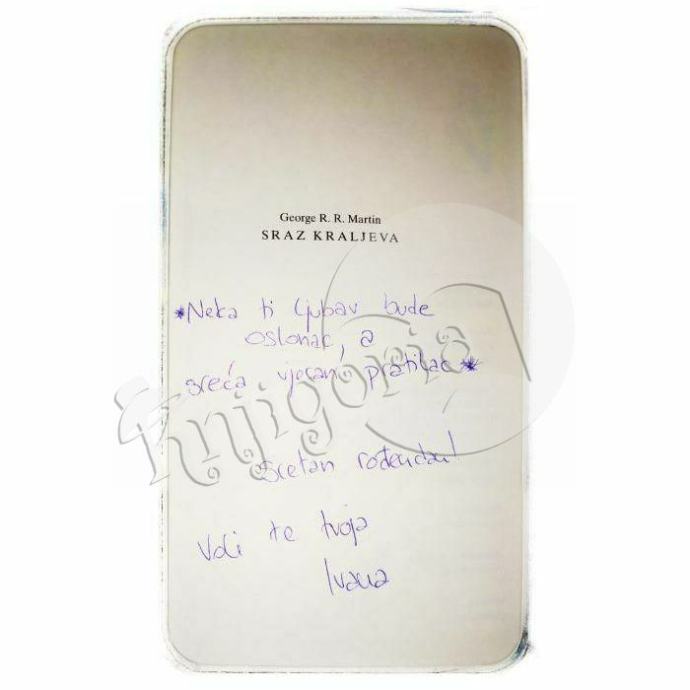 George R. R. Martin
SRAZ KRALJEVA
*Neka ti ljubav bude
oslonac, a
sreća vjecan pratilac*
Sretan rođendan!
Voli te tvoja
Ivana
Knjigorija